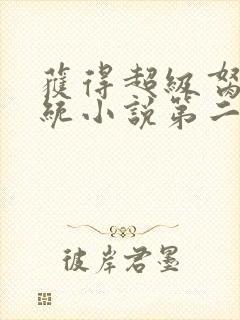 獲得超級
統小說第二
彼岸君墨